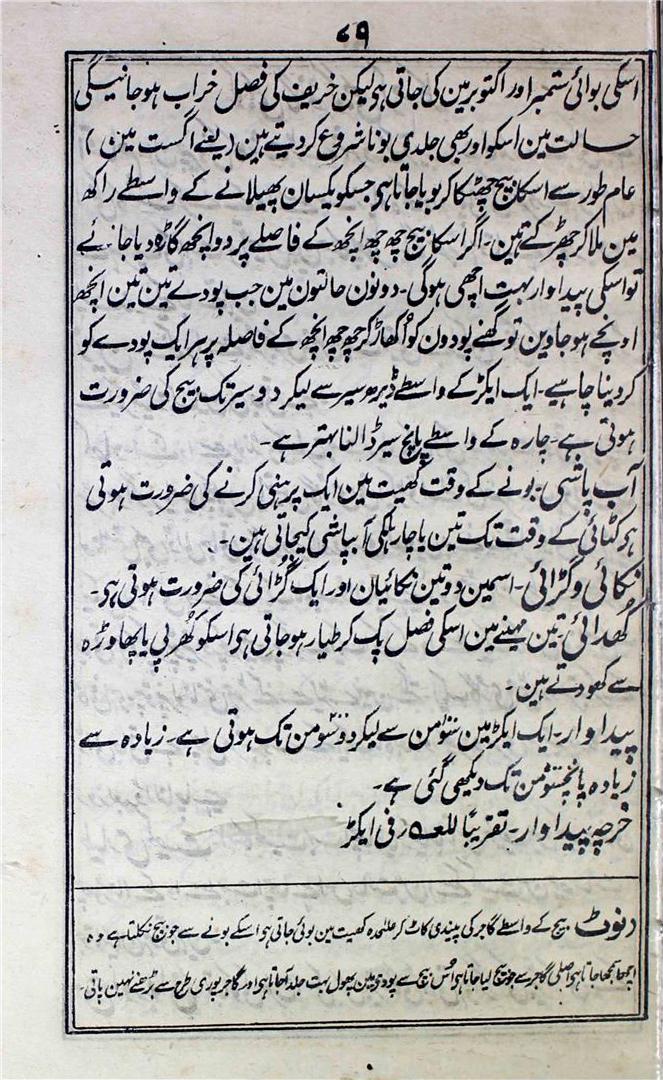 ۷۹
اسکی بوائی ستمبر اور اکتوبر مین کی جاتی ہی لیکن خریف کی فصل خراب ہو جانیکی
حالت مین اسکو اور بھی جلدی بونا شروع کردیتے ہین (یعنے اگست مین)
عام طور سے اسکا بیج چھٹکا کر بویا جاتا ہی جسکو یکسان پھیلانے کے واسطے راکھ
مین ملا کر چھڑکتے ہین۔ اگر اسکا بیج چھ چھ انچھ کے فاصلے پر دو انچھ گاڑ دیا جائے
تو اسکی پیداوار بہت اچھی ہوگی۔ دونون حالتون مین جب پودے تین تین انچھ
اونچے ہو جاوین تو گھنے پودون کو اُکھاڑ کر چھ چھ انچھ کے فاصلہ پر ہر ایک پودے کو
کردینا چاہیے۔ ایک ایکڑ کے واسطے ڈیڑھ سیر سے لیکر دو سیر تک بیج کی ضرورت
ہوتی ہے۔ چارہ کے واسطے پانچ سیر ڈالنا بہتر ہے۔
آب پاشی۔ بونے کے وقت کھیت مین ایک پرہنی کرنے کی ضرورت ہوتی
ہی کٹائی کے وقت تک تین یا چار ہلکی آبپاشی کیجاتی ہین۔
نکائی و گڑائی۔ اسمین دو تین نکائیان اور ایک گڑائی کی ضرورت ہوتی ہی۔
کُھدائی۔ تین مہینے مین اسکی فصل پک کر طیار ہو جاتی ہی اسکو کُھرپی یا پھاوڑہ
سے کھودتے ہین۔
پیداوار۔ ایک ایکڑ مین سَو من سے لیکر دو سَو من تک ہوتی ہے۔ زیادہ سے
زیادہ پانچسَو من تک دیکھی گئی ہے۔
خرچہ پیداوار۔ تقریباً فی ایکڑ
(نوٹ بیج کے واسطے گاجر کی پیندی کاٹ کر علٰحدہ کھیت مین بوئی جاتی ہی اسکے بونے سے جو بیج نکلتا ہے وہ
اچھا سمجھا جاتا ہی اصلی گاجر سے جو بیج لیا جاتا ہی اُس بیج سے پودے مین پھول بہت جلد آجاتا ہی اور گاجر پوری طرح سے بڑھنے نہین پاتی۔